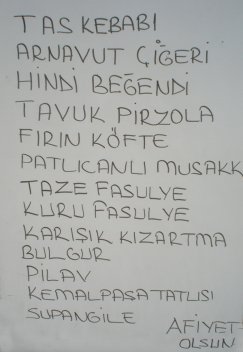 TAS KEBABI
ARNAVUT ÇİĞERİ
HİNDİ BEĞENDİ
TAVUK PİRZOLA
FIRIN KÖFTE
PATLICANLI MUSAKK
TAZE FASULYE
KURU FASULYE
KARIŞIK KIZARTMA
BULGUR
PİLAV
KEMALPAŞA TATLISI
SUPANGİLE
AFİYET
OLSUN